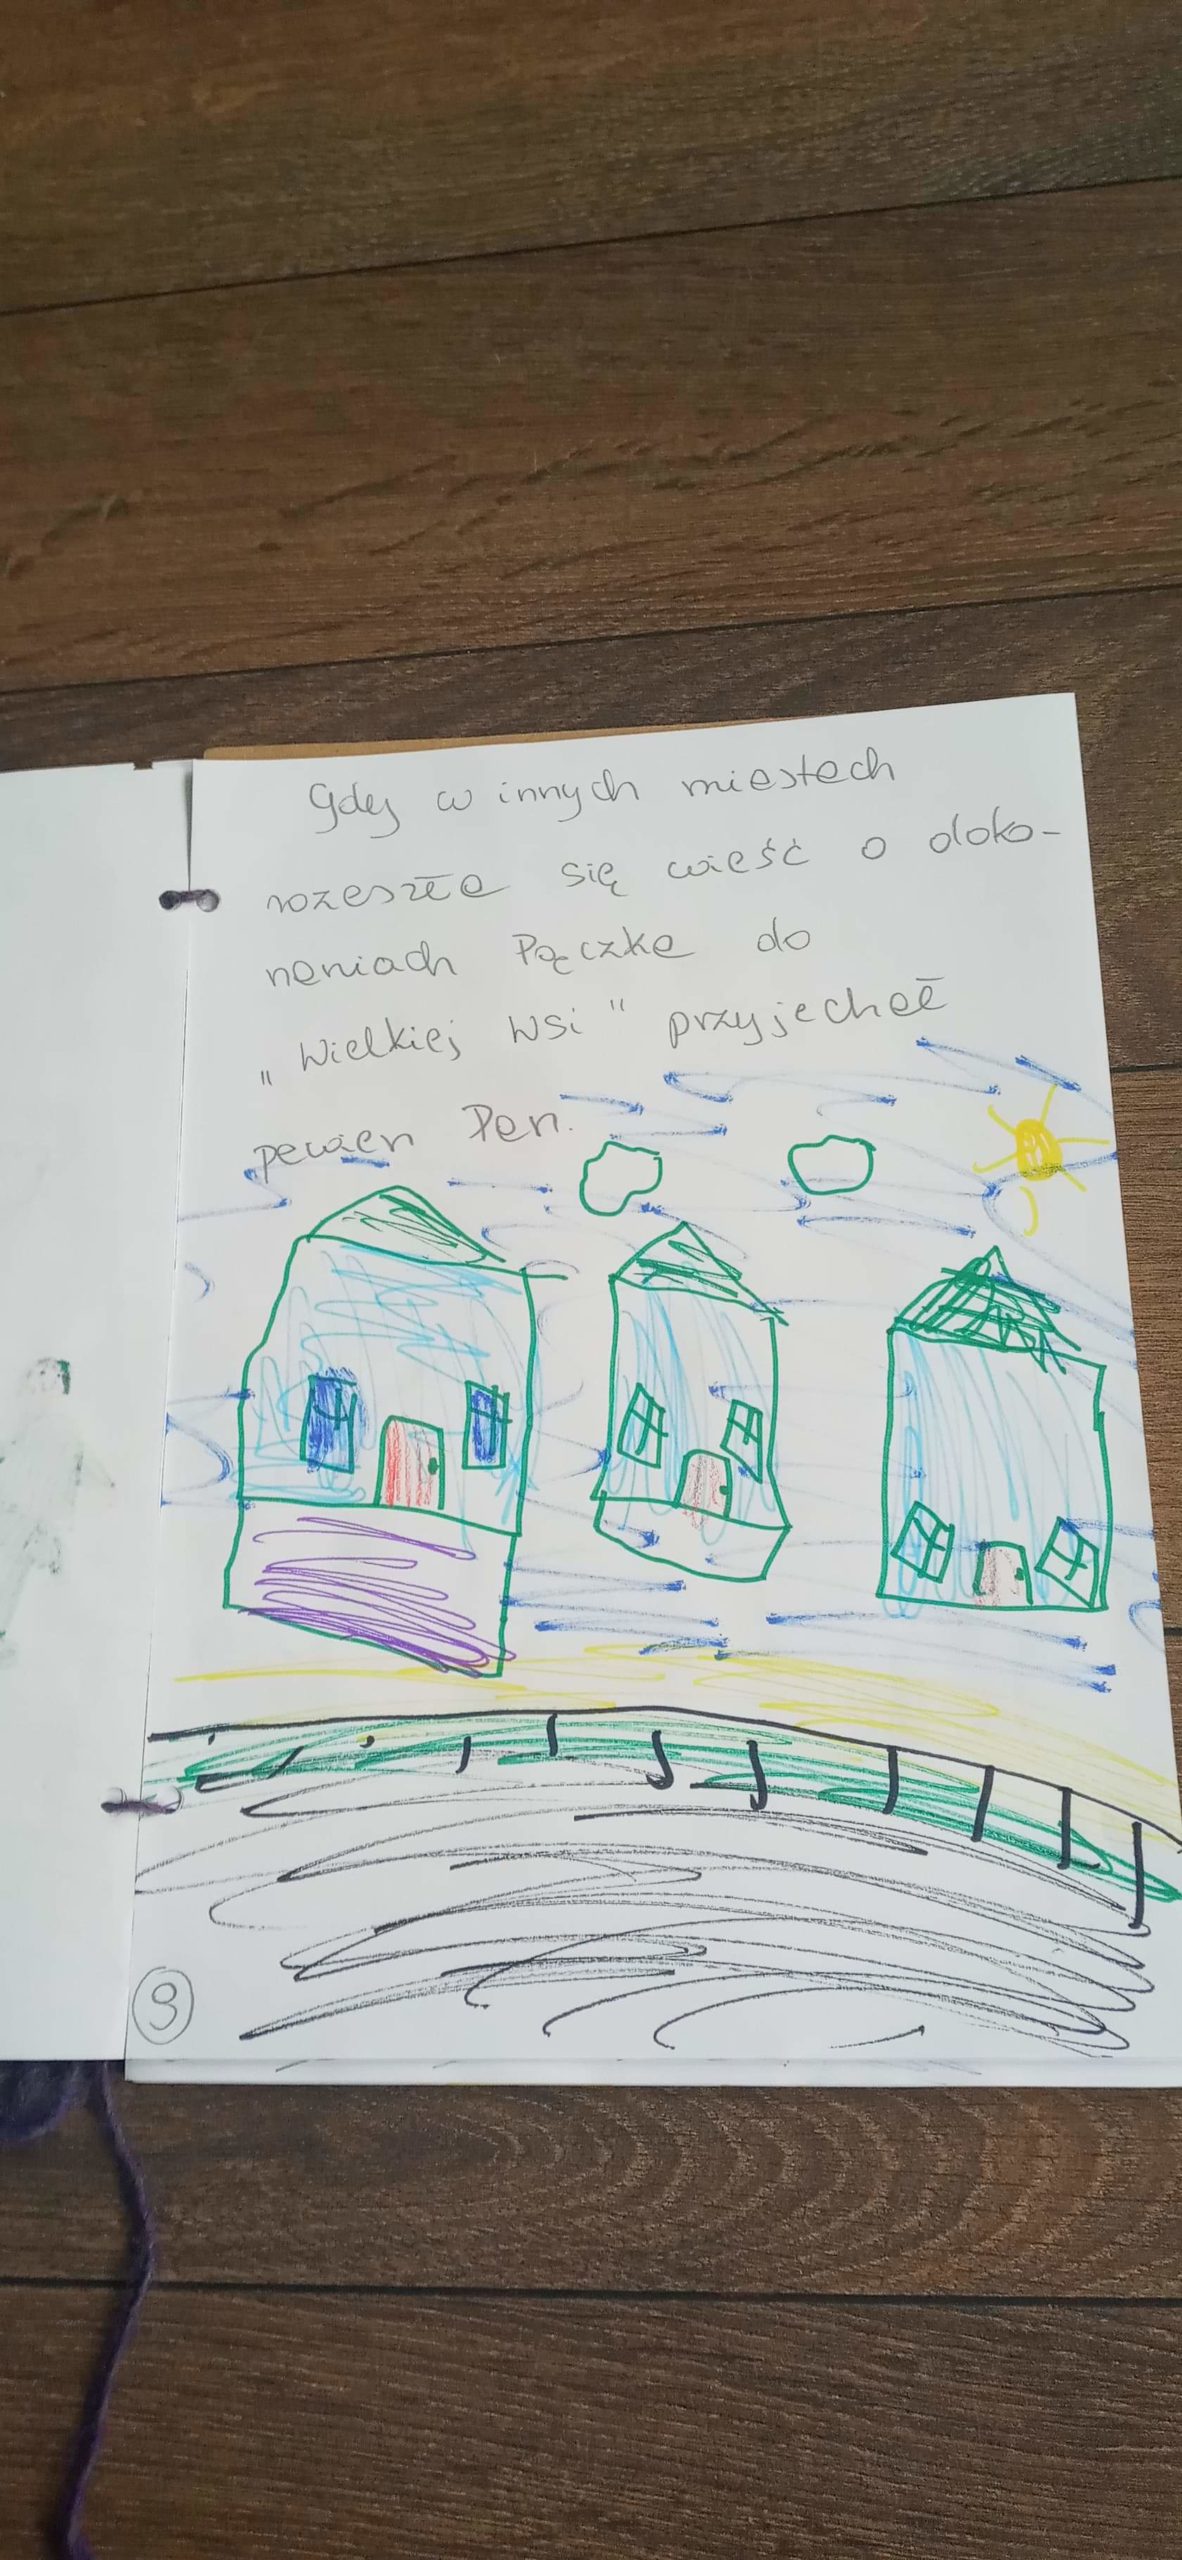 Gdy w innych miastach
rozeszła się wieść o doko-
naniach Pączka do
„Wielkiej Wsi" przyjechał
pewien Pan.
9